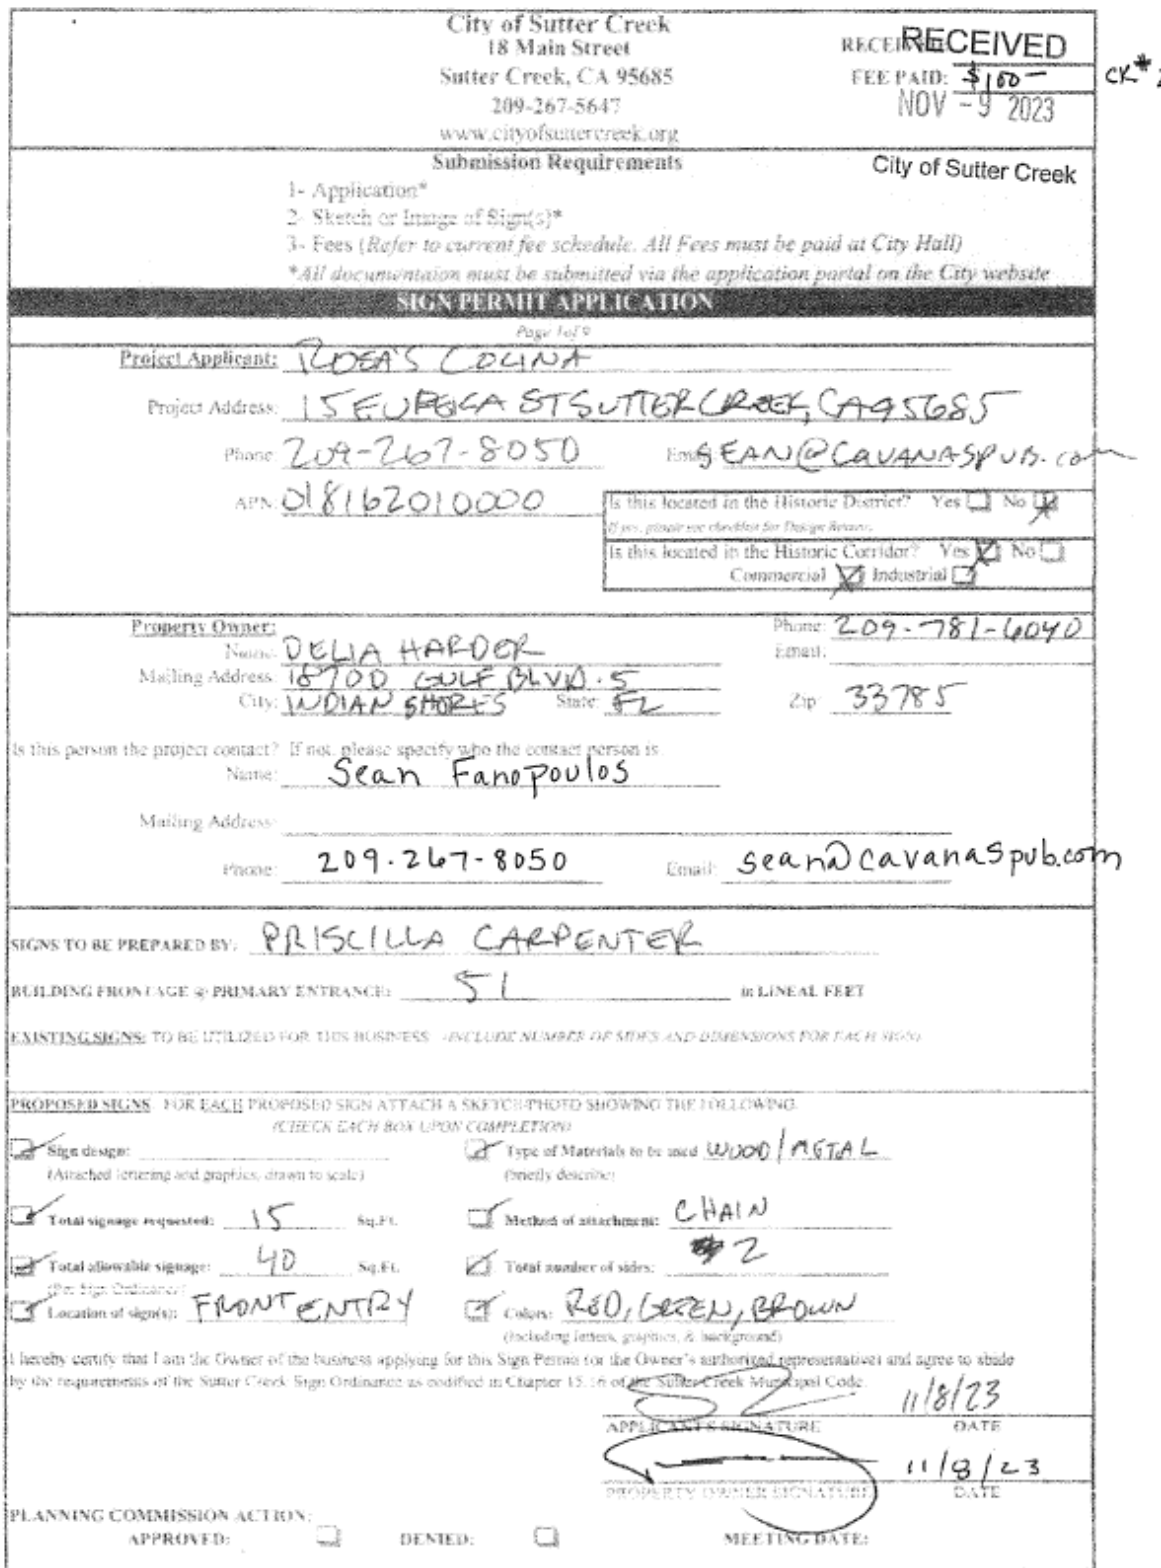 City of Sutter Creek
18 Main Street
Sutter Creek, CA 95685
209-267-5647
www.cityofsuttercreek.org
RECEIVED
FEE PAID: $100 - CK#
NOV - 9 2023
City of Sutter Creek
Submission Requirements
1- Application*
2- Sketch or Image of Sign(s)*
3- Fees (Refer to current fee schedule. All Fees must be paid at City Hall)
*All documentaion must be submitted via the application portal on the City website
SIGN PERMIT APPLICATION
Page 1 of 9
Project Applicant: COCINA
Project Address: 15 EUREKA ST SUTTER CREEK, CA 95685
Phone: 209-267-8050 Email: SEAN@CAVANASPUB.com
APN: 018162010000
Is this located in the Historic District? Yes No
If yes, please see checklist for Design Review.
Is this located in the Historic Corridor? Yes No
Commercial Industrial
Property Owner: Phone: 209-781-6040
Name: DELIA HARDER Email:
Mailing Address: 18700 GULF BLVD. 5
City: INDIAN SHORES State: FL Zip: 33785
Is this person the project contact? If not, please specify who the contact person is
Name: Sean Fanopoulos
Mailing Address:
Phone: 209.267-8050 Email: sean@cavanaspub.com
SIGNS TO BE PREPARED BY: PRISCILLA CARPENTER
BUILDING FRONTAGE @ PRIMARY ENTRANCE: 51 in LINEAL FEET
EXISTING SIGNS: TO BE UTILIZED FOR THIS BUSINESS (INCLUDE NUMBER OF SIDES AND DIMENSIONS FOR EACH SIGN)
PROPOSED SIGNS FOR EACH PROPOSED SIGN ATTACH A SKETCH/PHOTO SHOWING THE FOLLOWING
(CHECK EACH BOX UPON COMPLETION)
Sign design: Type of Materials to be used WOOD/METAL
(Attached lettering and graphics, drawn to scale) (briefly describe)
Total signage requested: 15 Sq.Ft. Method of attachment: CHAIN
Total allowable signage: 40 Sq.Ft. Total number of sides: 2
(Per Sign Ordinance)
Location of sign(s): FRONT ENTRY Colors: RED, GREEN, BROWN
(Including letters, graphics, & background)
I hereby certify that I am the Owner of the business applying for this Sign Permit (or the Owner's authorized representatives and agree to abide
by the requirements of the Sutter Creek Sign Ordinance as codified in Chapter 15.16 of the Sutter Creek Municipal Code.
11/8/23
APPLICANT'S SIGNATURE DATE
11/8/23
PROPERTY OWNER SIGNATURE DATE
PLANNING COMMISSION ACTION:
APPROVED: DENIED: MEETING DATE: